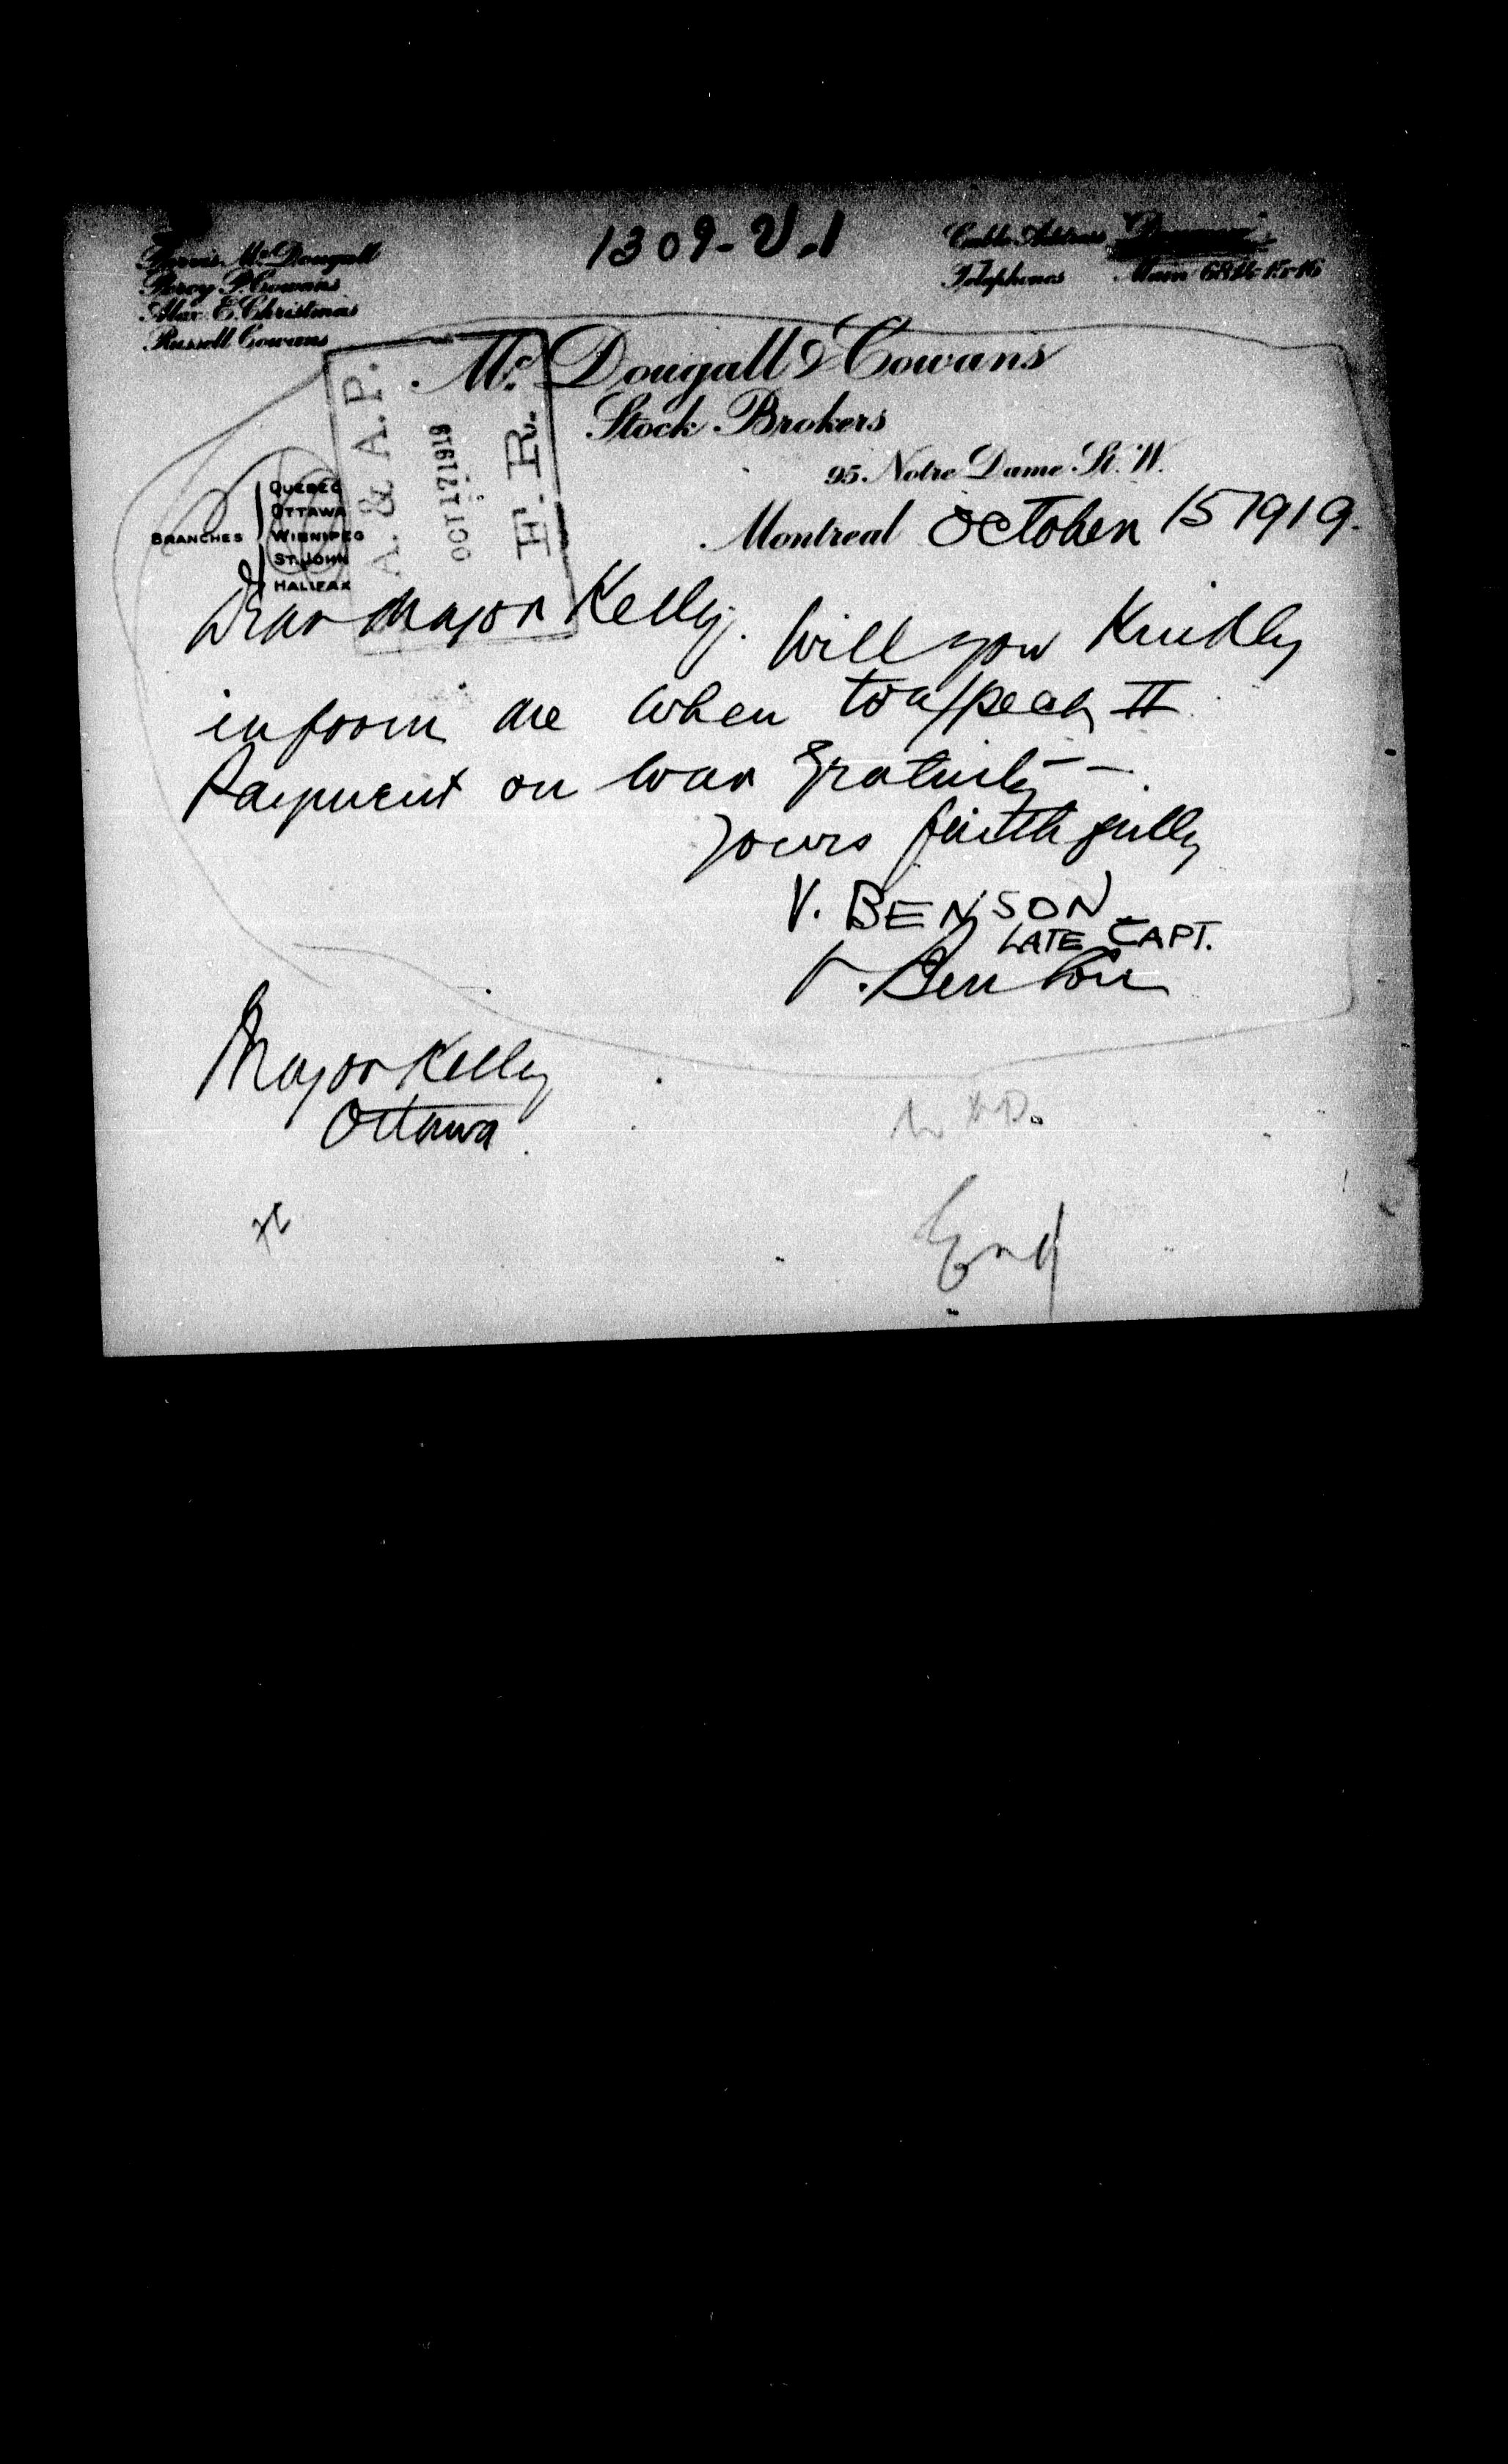 1309-V.1
Purvis McDougall
Percy P. Cowans
Alex. E. Christmas
Russell Cowans
Cable Address
Telephones Main 6814-15-16
McDougall & Cowans
Stock Brokers
95. Notre Dame St. W.
Montreal October 15 1919.
BRANCHES
QUEBEC
OTTAWA
WINNIPEG
ST. JOHN
HALIFAX
A. & A. P.
OCT 17 1919
F. R.
Dear Major Kelly. Will you Kindly
inform me when to expect II
Payment on War Gratuity -.
Yours faithfully
V. BENSON
LATE CAPT.
V. Benson
Major Kelly
Ottawa.